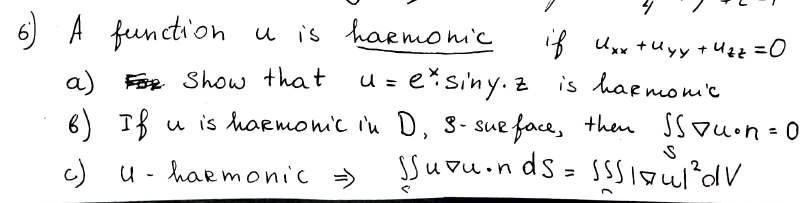 6) A function u is harmonic if u_xx + u_yy + u_zz = 0
a) Show that u = e^x · sin y · z is harmonic
b) If u is harmonic in D, S - surface, then ∫∫_S ∇u · n = 0
c) u - harmonic ⇒ ∫∫_S u∇u · n dS = ∫∫∫ |∇u|² dV